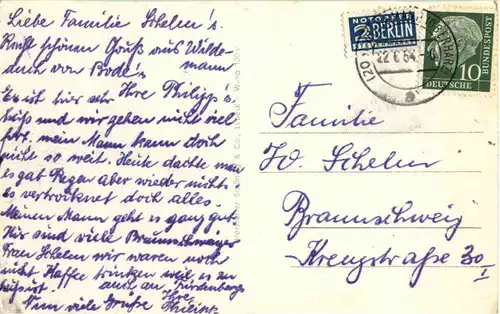 Liebe Familie Schelm's.
Recht schönen Gruß aus Wilde-
mann
auch von Bode's
Ihre Philipp's.
Es ist hier sehr
heiß und wir gehen nicht viel
fort. mein Mann kann doch
nicht so weit. Heute dachte man
es gat Regen aber wieder nichts
es vertrocknet doch alles.
Meinen Mann geht es ganz gut
Hir sind viele Braunschweiger
Frau Schelm wir waren noch
nicht Kaffe trinken weil es zu
heiß ist. auch an Fürstenbergs
Nun viele Grüße Ihre
Familie
W. Schelm
Braunschweig
Kreuzstraße 30 I
NOTOPFER
2 BERLIN
STEUERMARKE
22.6.54
10
DEUTSCHE
BUNDESPOST